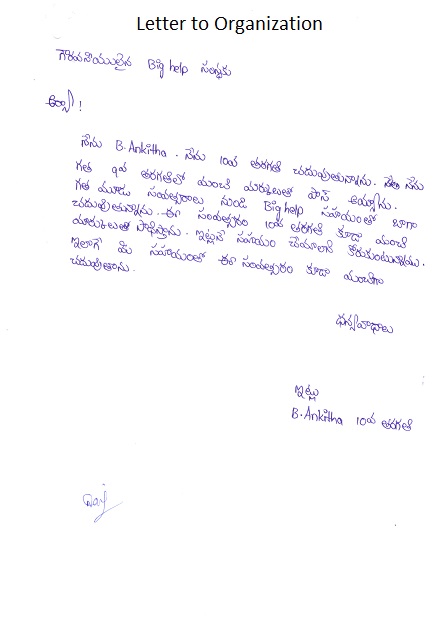 Letter to Organization
గౌరవనీయులైన Big help సంస్థకు
ఆర్యా !
నేను B. Ankitha . నేను 10వ తరగతి చదువుతున్నాను. నేను
గత 9వ తరగతిలో మంచి మార్కులతో పాస్ అయ్యాను.
గత మూడు సంవత్సరాల నుండి Big help సహాయంతో బాగా
చదువుతున్నాను. ఈ సంవత్సరం 10వ తరగతి కూడా మంచి
మార్కులతో సాధిస్తాను. ఇట్లునే సహాయం చేయాలని కోరుకుంటున్నాము.
ఇలాగే మీ సహాయంతో ఈ సంవత్సరం కూడా మంచిగా
చదువుతాను.
ధన్యవాదాలు
ఇట్లు
B. Ankitha 10వ తరగతి